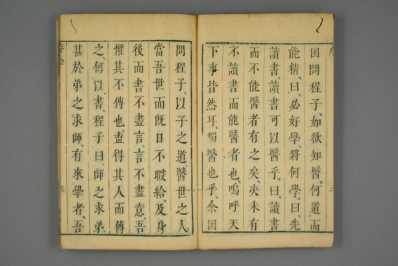 因問程子、如欲知醫、何道而
能精、曰、必好學、將何學、曰、先
讀書、讀書可以醫乎、曰、讀書
而不能醫者有之矣、夫未有
不讀書而能醫者也、嗚呼天
下事皆然耳、獨醫也乎、余因
問程子、以子之道醫世之人、
當吾世而旣日不暇給、及身
後而書不盡言、言不盡意、吾
懼其不傳也、盍得其人而傳
之、何以書、程子曰、師之求弟、
甚於弟之求師、有來學者、吾